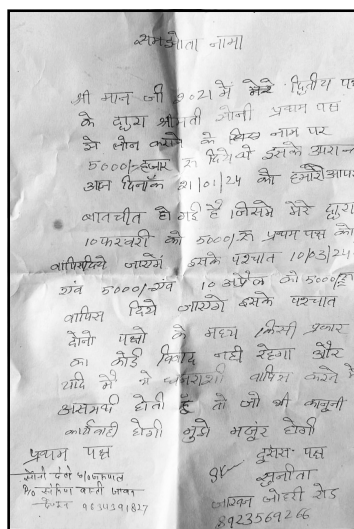 समझौता नामा
श्री मान जी 2021 में मेरे द्वितीय पक्ष
के द्वारा श्रीमती सोनी प्रथम पक्ष
से लोन कराने के नाम पर
5000/हजार रू दिये थे इसके उपरान्त
आज दिनाँक 31/01/24 को हमारी आपसी
बातचीत हो गई है जिसमे मेरे द्वारा
10 फरवरी को 5000/रू प्रथम पक्ष को
वापिस दिये जाएगें इसके पश्चात 10/03/24 को
एवं 5000/ एवं 10 अप्रैल को 5000/रू
वापिस दिये जाएगे इसके पश्चात
दोनो पक्षो के मध्य किसी प्रकार
का कोई विवाद नही रहेगा और
यदि मैं ये धनराशी वापिस करने में
असमर्थ होती हूँ तो जो भी कानूनी
कार्यवाही होगी मुझे मंजूर होगी
प्रथम पक्ष
दूसरा पक्ष
सोनी
सुनीता
जोहरी रोड
8923569266